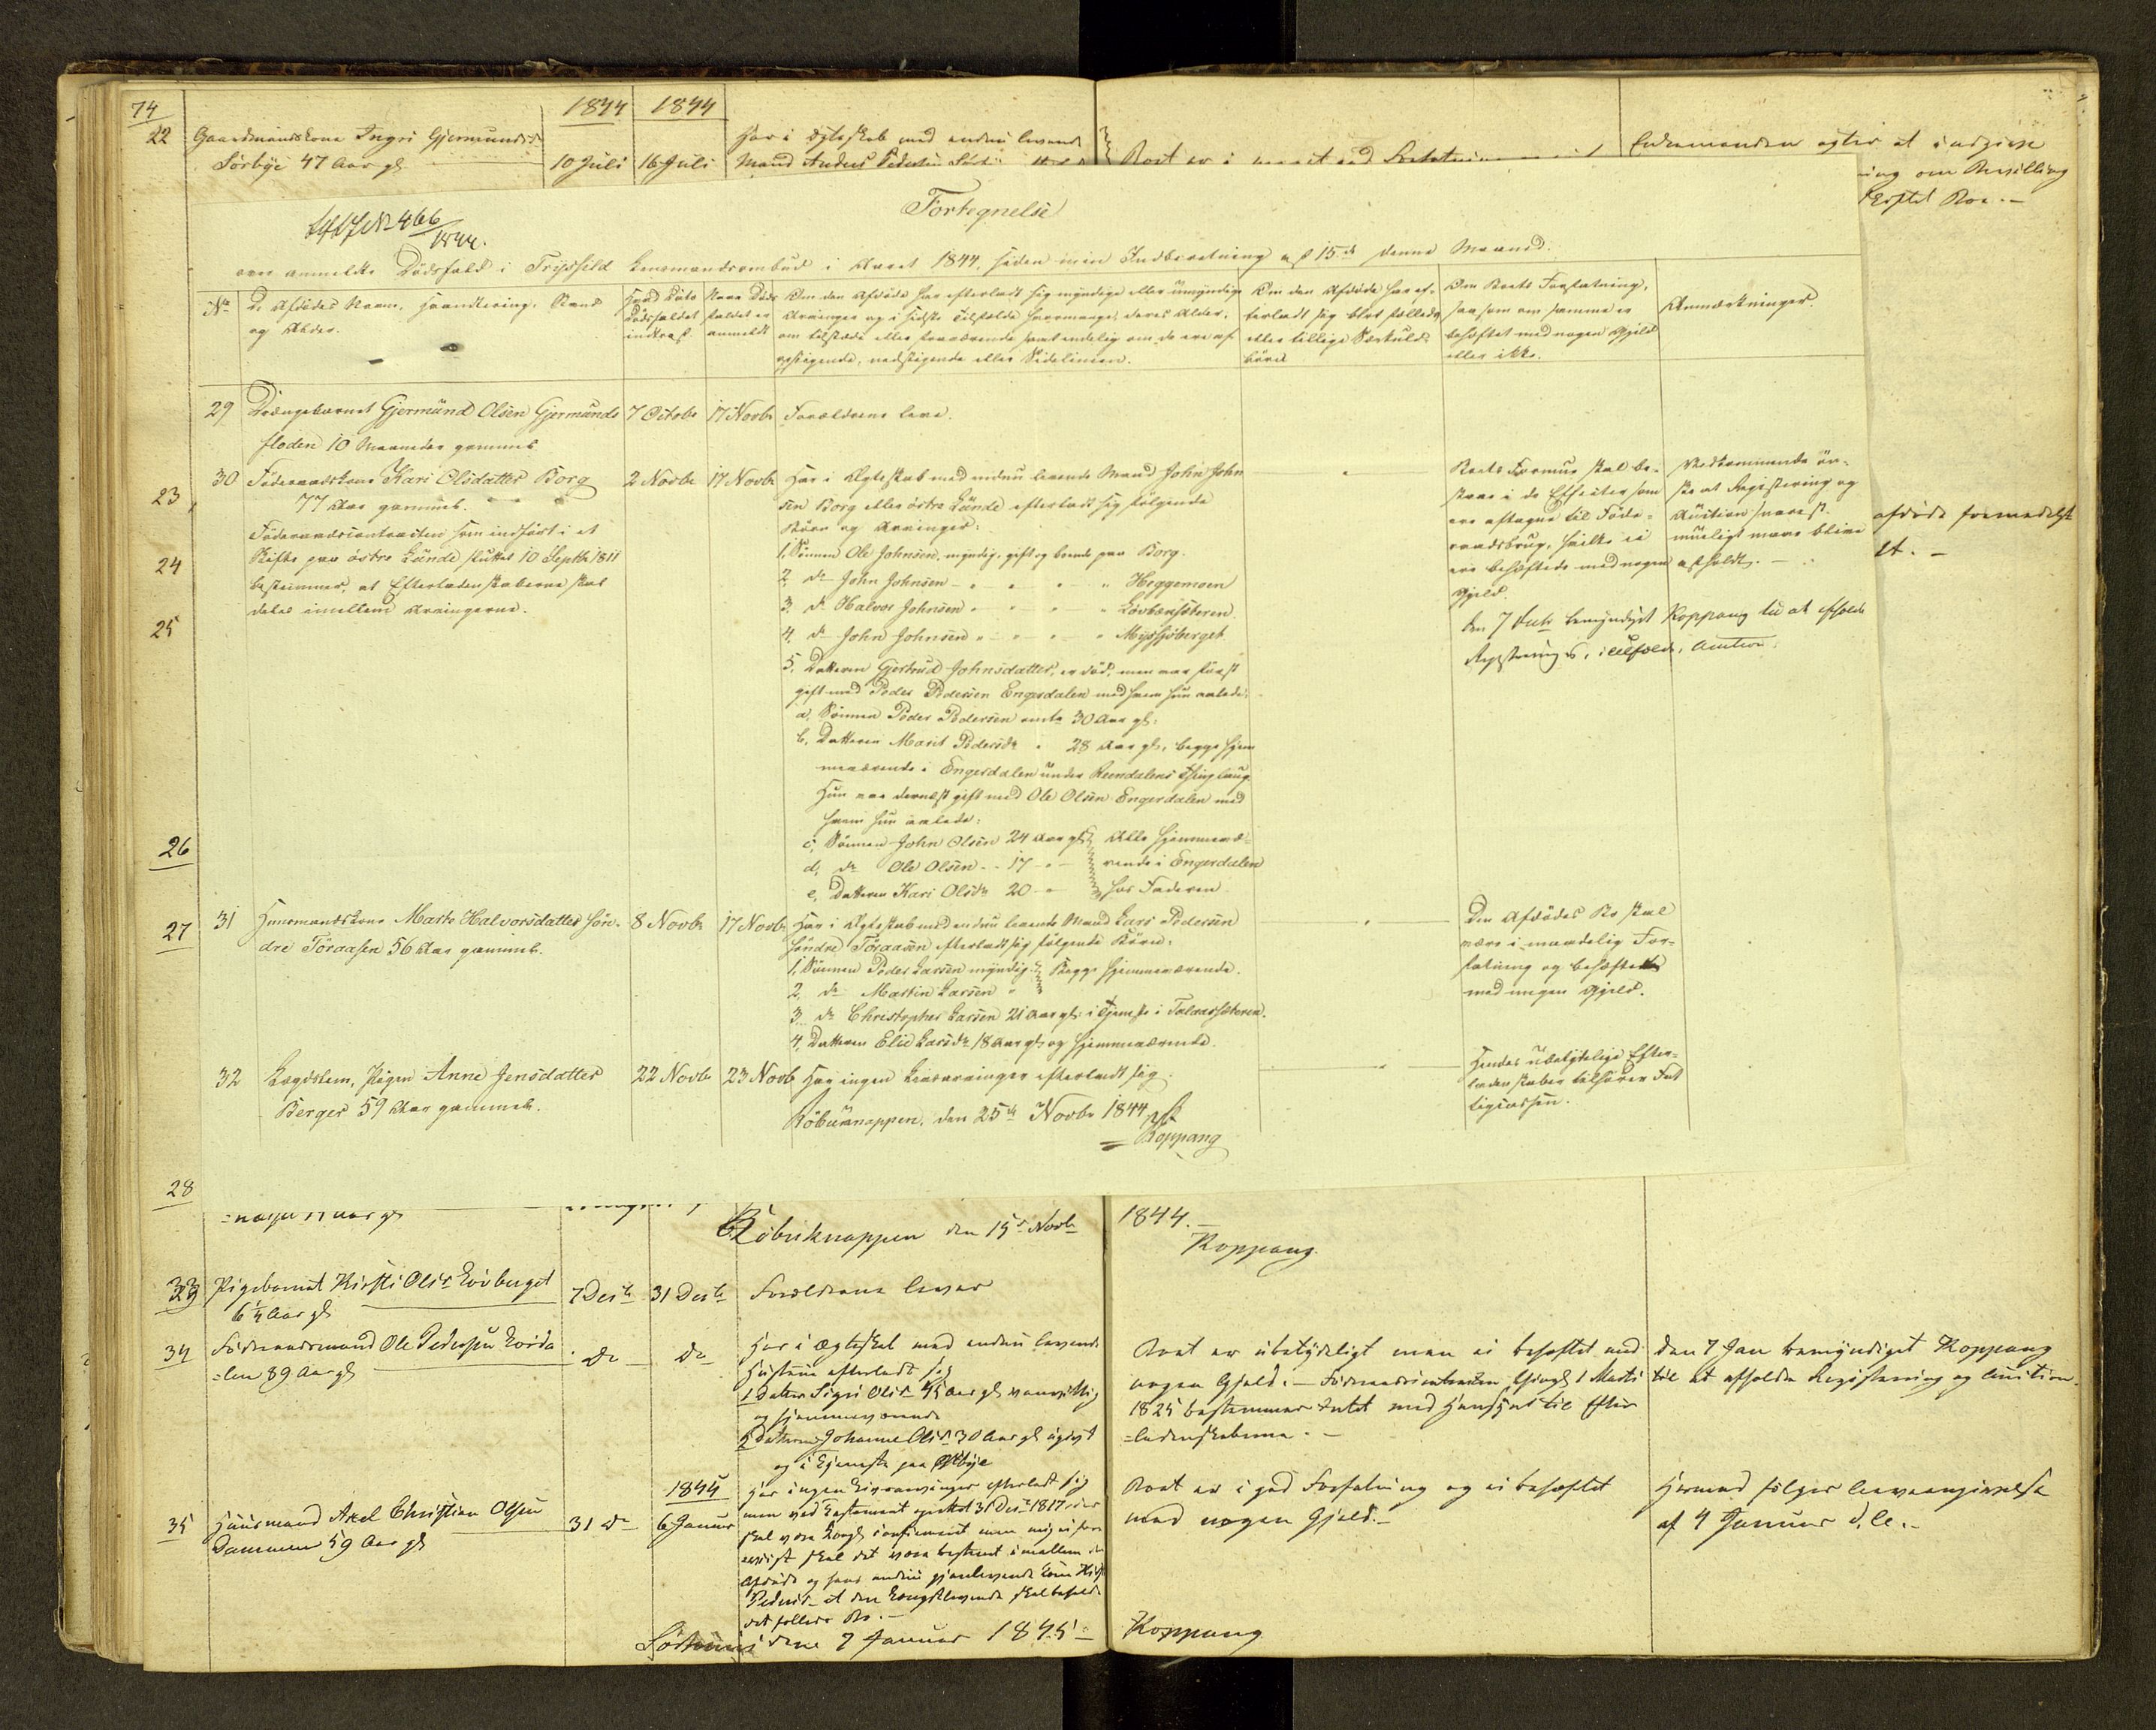 74
1844 1844
22 Gaardmandskone Ingri Gjermundsd
Sørbye 47 Aar gl 10 Juli 16 Juli
Har i Ægteskab med endnu levende
Mand Anders Pedersen
Boet er i
Enkemanden agter at indgive
om Bevilling
Boe.-
No 466
1844.
Fortegnelse
over anmeldte Dødsfald i Trysild Lensmandsombud i Aaret 1844, siden min Indberetning af 15de denne Maaned.
No
De Afdødes Navn, Haandtering, Stand
og Alder.
Hvad Dato
Dødsfaldet
indtraf.
Naar Døds
faldet er
anmeldt
Om den Afdøde har efterladt sig myndige eller umyndige
Arvinger og i sidste Tilfælde hvormange, deres Alder,
om tilstæde eller fraværende samt endelig om de ere af
opstigende, nedstigende eller Sidelinien.
Om den Afdøde har ef-
terladt sig blot fælleds
eller tillige Særkulds
børn
Om Boets Forfatning,
saasom om samme er
behæftet med nogen Gjeld
eller ikke.
Anmærkninger.
29 Drængebarnet Gjermund Olsen Gjermunds 7 Octobr 17 Novbr Forældrene leve.
floden 10 Maaneder gammel.
30 Føderaadskone Kari Olsdatter Borg 2 Novbr 17 Novbr Har i Ægteskab med endnu levende Mand John John
77 Aar gammel.
Føderaadscontracten som indført i et
Skifte paa østre Lunde sluttet 10 Septbr 1811
bestemmer, at Efterladenskaberne skal
deles imellem Arvingerne.
sen Borg eller østre Lunde efterladt sig følgende
Børn og Arvinger:
1, Sønnen Ole Johnsen, myndig, gift og boende paa Borg.
2, do John Johnsen - " " " " Heggemoen
3, do Halvor Johnsen " " " " Løvbersæteren
4, do John Johnsen " " " " Myssjøberget
5, Datteren Gjertrud Johnsdatter, er død, men var først
gift med Peder Pedersen Engerdalen med hvem hun avlede:
a, Sønnen Peder Pedersen omtr 30 Aar gl:
b, Datteren Marit Pedersdr " 28 Aar gl:, begge hjem
meværende i Engerdalen under Rendalens Thinglaug
Hun var dernæst gift med Ole Olsen Engerdalen med
hvem hun avlede:
c, Sønnen John Olsen 24 Aar gl: Alle hjemmevæ-
d, do Ole Olsen - - 17 - " - rende i Engerdalen
e, Datteren Kari Olsdr 20 - " hos Faderen
Boets Formue skal be-
staae i de Effecter som
ere aftagne til Føde-
raadsbrug, hvilke ei
ere behæftede med nogen
Gjeld.
Vedkommende øn-
ske at Registering og
Auction snarest
mueligt maae blive
afholdt. -
Den 7 bemyndiget Koppang til at afholde
Registrering s, i tilfælde, Auction.
23
24
25
26
27
28
afdøde formedelst
lt. -
31 Huusmandskone Marte Halvorsdatter søn- 8 Novbr 17 Novbr Har i Ægteskab med endnu levende Mand Lars Pedersen
dre Tøraasen 56 Aar gammel.
søndre Tøraasen efterladt sig følgende Børn:
1, Sønnen Peder Larsen myndig Begge hjemmeværende.
2, do Martin Larsen "
3, do Christopher Larsen 21 Aar gl: i Tjeneste i
4, Datteren Elie Larsdr 18 Aar gl: og hjemmeværende.
Den Afdødes Bo skal
være i maadelig For-
fatning og behæftet
med ingen Gjeld.
32 Lægdslem, Pigen Anne Jensdatter 22 Novbr 23 Novbr Har ingen Livsarvinger efterladt sig.
Berger 59 Aar gammel.
Hendes ubetydelige Efter-
ladenskaber tilhører Fat
tigcassen.
Røbuknappen, den 25de Novbr 1844
Koppang
Røbuknappen den 15d Novbr 1844.-
Koppang
33 Pigebarnet Kirsti Olsdr Løvberget 7 Desbr 31 Desbr Forældrene lever
6 1/4 Aar gl
34 Føderaadsmand Ole Pedersen Lørda do do
=len 89 Aar gl
Har i Ægteskab med endnu levende
Hustrue efterladt sig
1 Datter Sigri Olsdr 45 Aar gl vanvittig
og hjemmeværende
2 Datteren Johanne Olsdr 30 Aar gl ugivt
og i Tjeneste paa Østbye
Boet er ubetydeligt men ei behæftet med
nogen Gjeld. - Føderaadscontracten thingl 1 Marti
1825 bestemmer Intet med Hensyn til Efter
=ladenskaberne. -
den 7 Jan bemyndiget Koppang
til at afholde Registrering og Auction.
1845
35 Huusmand Axel Christian Olsen 31 do 6 Januar
Dammen 59 Aar gl
Har ingen Livsarvinger efterladt sig
men ved Testament oprettet 31 Desbr 1817, der
skal være Kongl confirmeret men mig ei fore
viist skal det være bestemt imellem den
Afdøde og hans endnu gjenlevende Kone
Pedersdr at den længstlevende skal beholde
det fælleds Bo. -
Boet er i god Forfatning og ei behæftet
med nogen Gjeld.-
Hermed følger
af 4 Januar d. A.-
den 7 Januar 1845 - Koppang